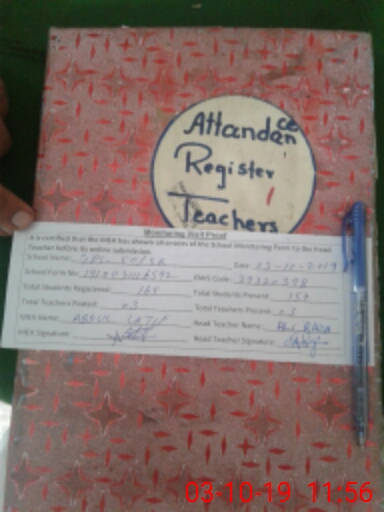 Attandance
Register
Teachers
Monitoring Visit Proof
It is certified that the MEA has shown all pages of the School Monitoring Form to the Head
Teacher before its online submission.
School Name: GPS Date: 03-10-2019
School Form No: EMIS Code: 39320398
Total Students Registered: 165 Total Students Present: 157
Total Teachers Posted: 03 Total Teachers Present: 03
MEA Name: ABDUL LATIF Head Teacher Name: ALI RAZA
MEA Signature: Head Teacher Signature:
03-10-19 11:56